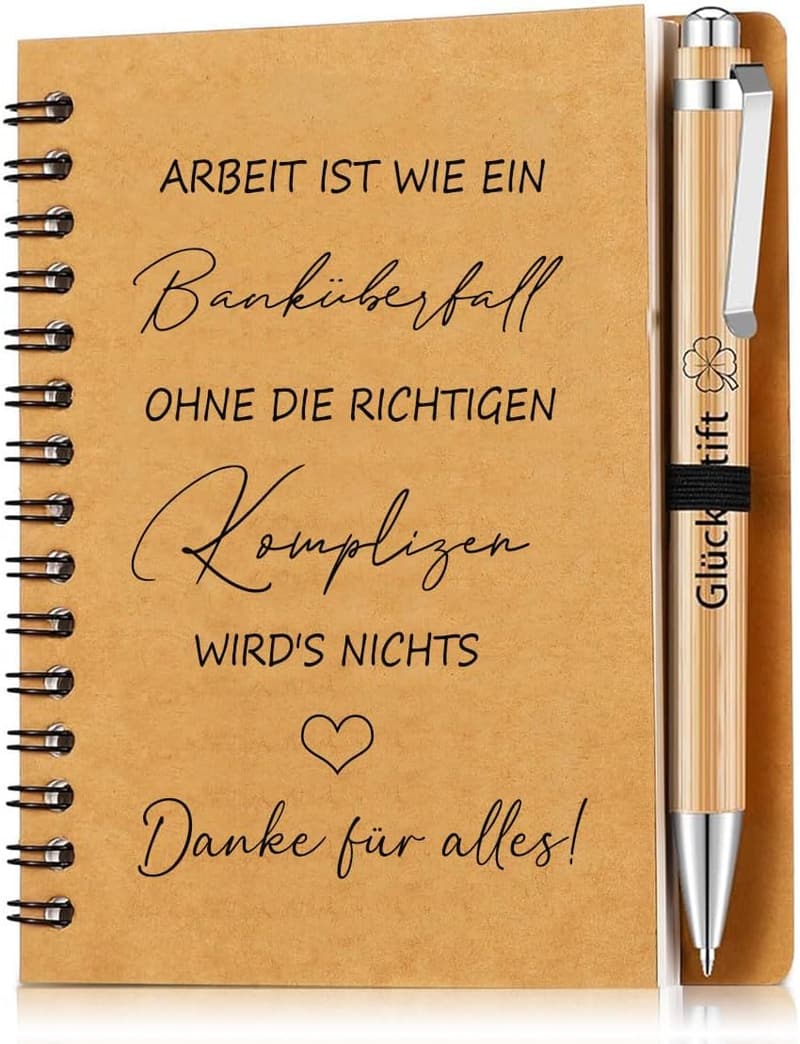 ARBEIT IST WIE EIN
Banküberfall
OHNE DIE RICHTIGEN
Komplizen
WIRD'S NICHTS
Danke für alles!
Glück tift